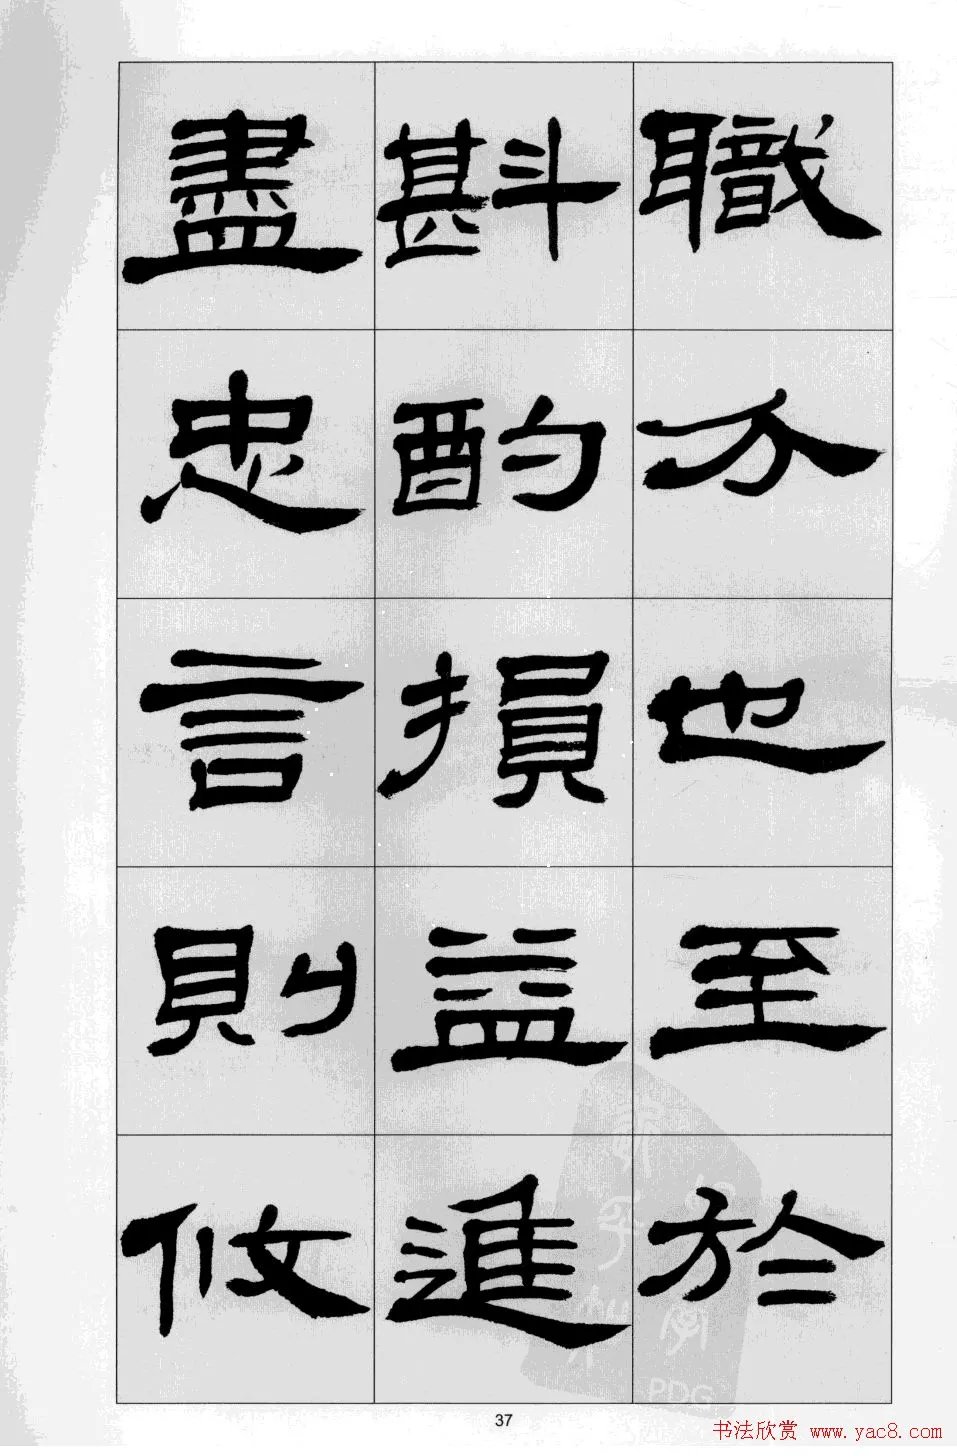 職分也至於
斟酌損益進
盡忠言則攸
37
PDG
书法欣赏 www.yac8.com